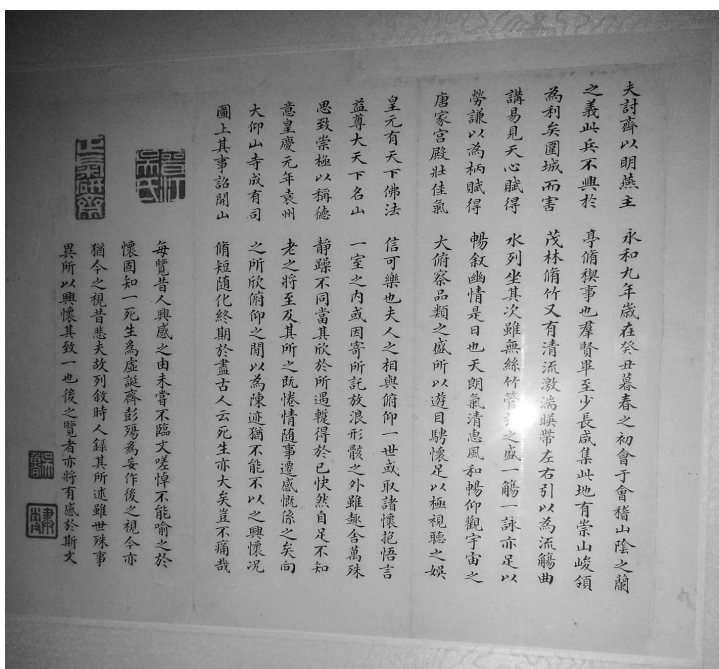 夫討齊以明燕主
之義此兵不興於
為利矣圍城而害
講易見天心賦得
勞謙以為柄賦得
唐家宮殿壯佳氣
皇元有天下佛法
益尊大天下名山
思致崇極以稱德
意皇慶元年袁州
大仰山寺成有司
圖上其事詔開山
永和九年歲在癸丑暮春之初會于會稽山陰之蘭
亭脩禊事也羣賢畢至少長咸集此地有崇山峻領
茂林脩竹又有清流激湍暎帶左右引以為流觴曲
水列坐其次雖無絲竹管之盛一觴一詠亦足以
暢叙幽情是日也天朗氣清惠風和暢仰觀宇宙之
大俯察品類之盛所以遊目騁懷足以極視聽之娛
信可樂也夫人之相與俯仰一世或取諸懷抱悟言
一室之內或因寄所託放浪形骸之外雖趣舍萬殊
靜躁不同當其欣於所遇蹔得於己快然自足不知
老之將至及其所之既惓情隨事遷感慨係之矣向
之所欣俯仰之閒以為陳迹猶不能不以之興懷况
脩短隨化終期於盡古人云死生亦大矣豈不痛哉
每覽昔人興感之由未嘗不臨文嗟悼不能喻之於
懷固知一死生為虛誕齊彭殤為妄作後之視今亦
猶今之視昔悲夫故列敘時人錄其所述雖世殊事
異所以興懷其致一也後之覽者亦將有感於斯文